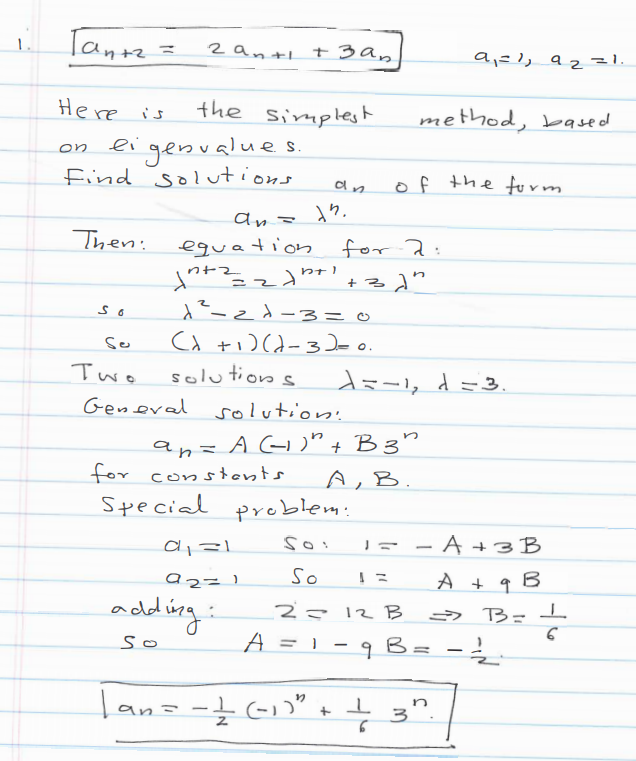 1. aₙ₊₂ = 2aₙ₊₁ + 3aₙ a₁=1, a₂=1.
Here is the simplest method, based
on eigenvalues.
Find solutions aₙ of the form
aₙ = λⁿ.
Then: equation for λ:
λⁿ⁺² = 2λⁿ⁺¹ + 3λⁿ
so λ² - 2λ - 3 = 0
so (λ+1)(λ-3) = 0.
Two solutions λ=-1, λ=3.
General solution:
aₙ = A(-1)ⁿ + B3ⁿ
for constants A, B.
Special problem:
a₁=1 so: 1 = -A + 3B
a₂=1 so 1 = A + 9B
adding: 2 = 12B ⇒ B = 1/6
so A = 1 - 9B = -1/2.
aₙ = -1/2 (-1)ⁿ + 1/6 3ⁿ.